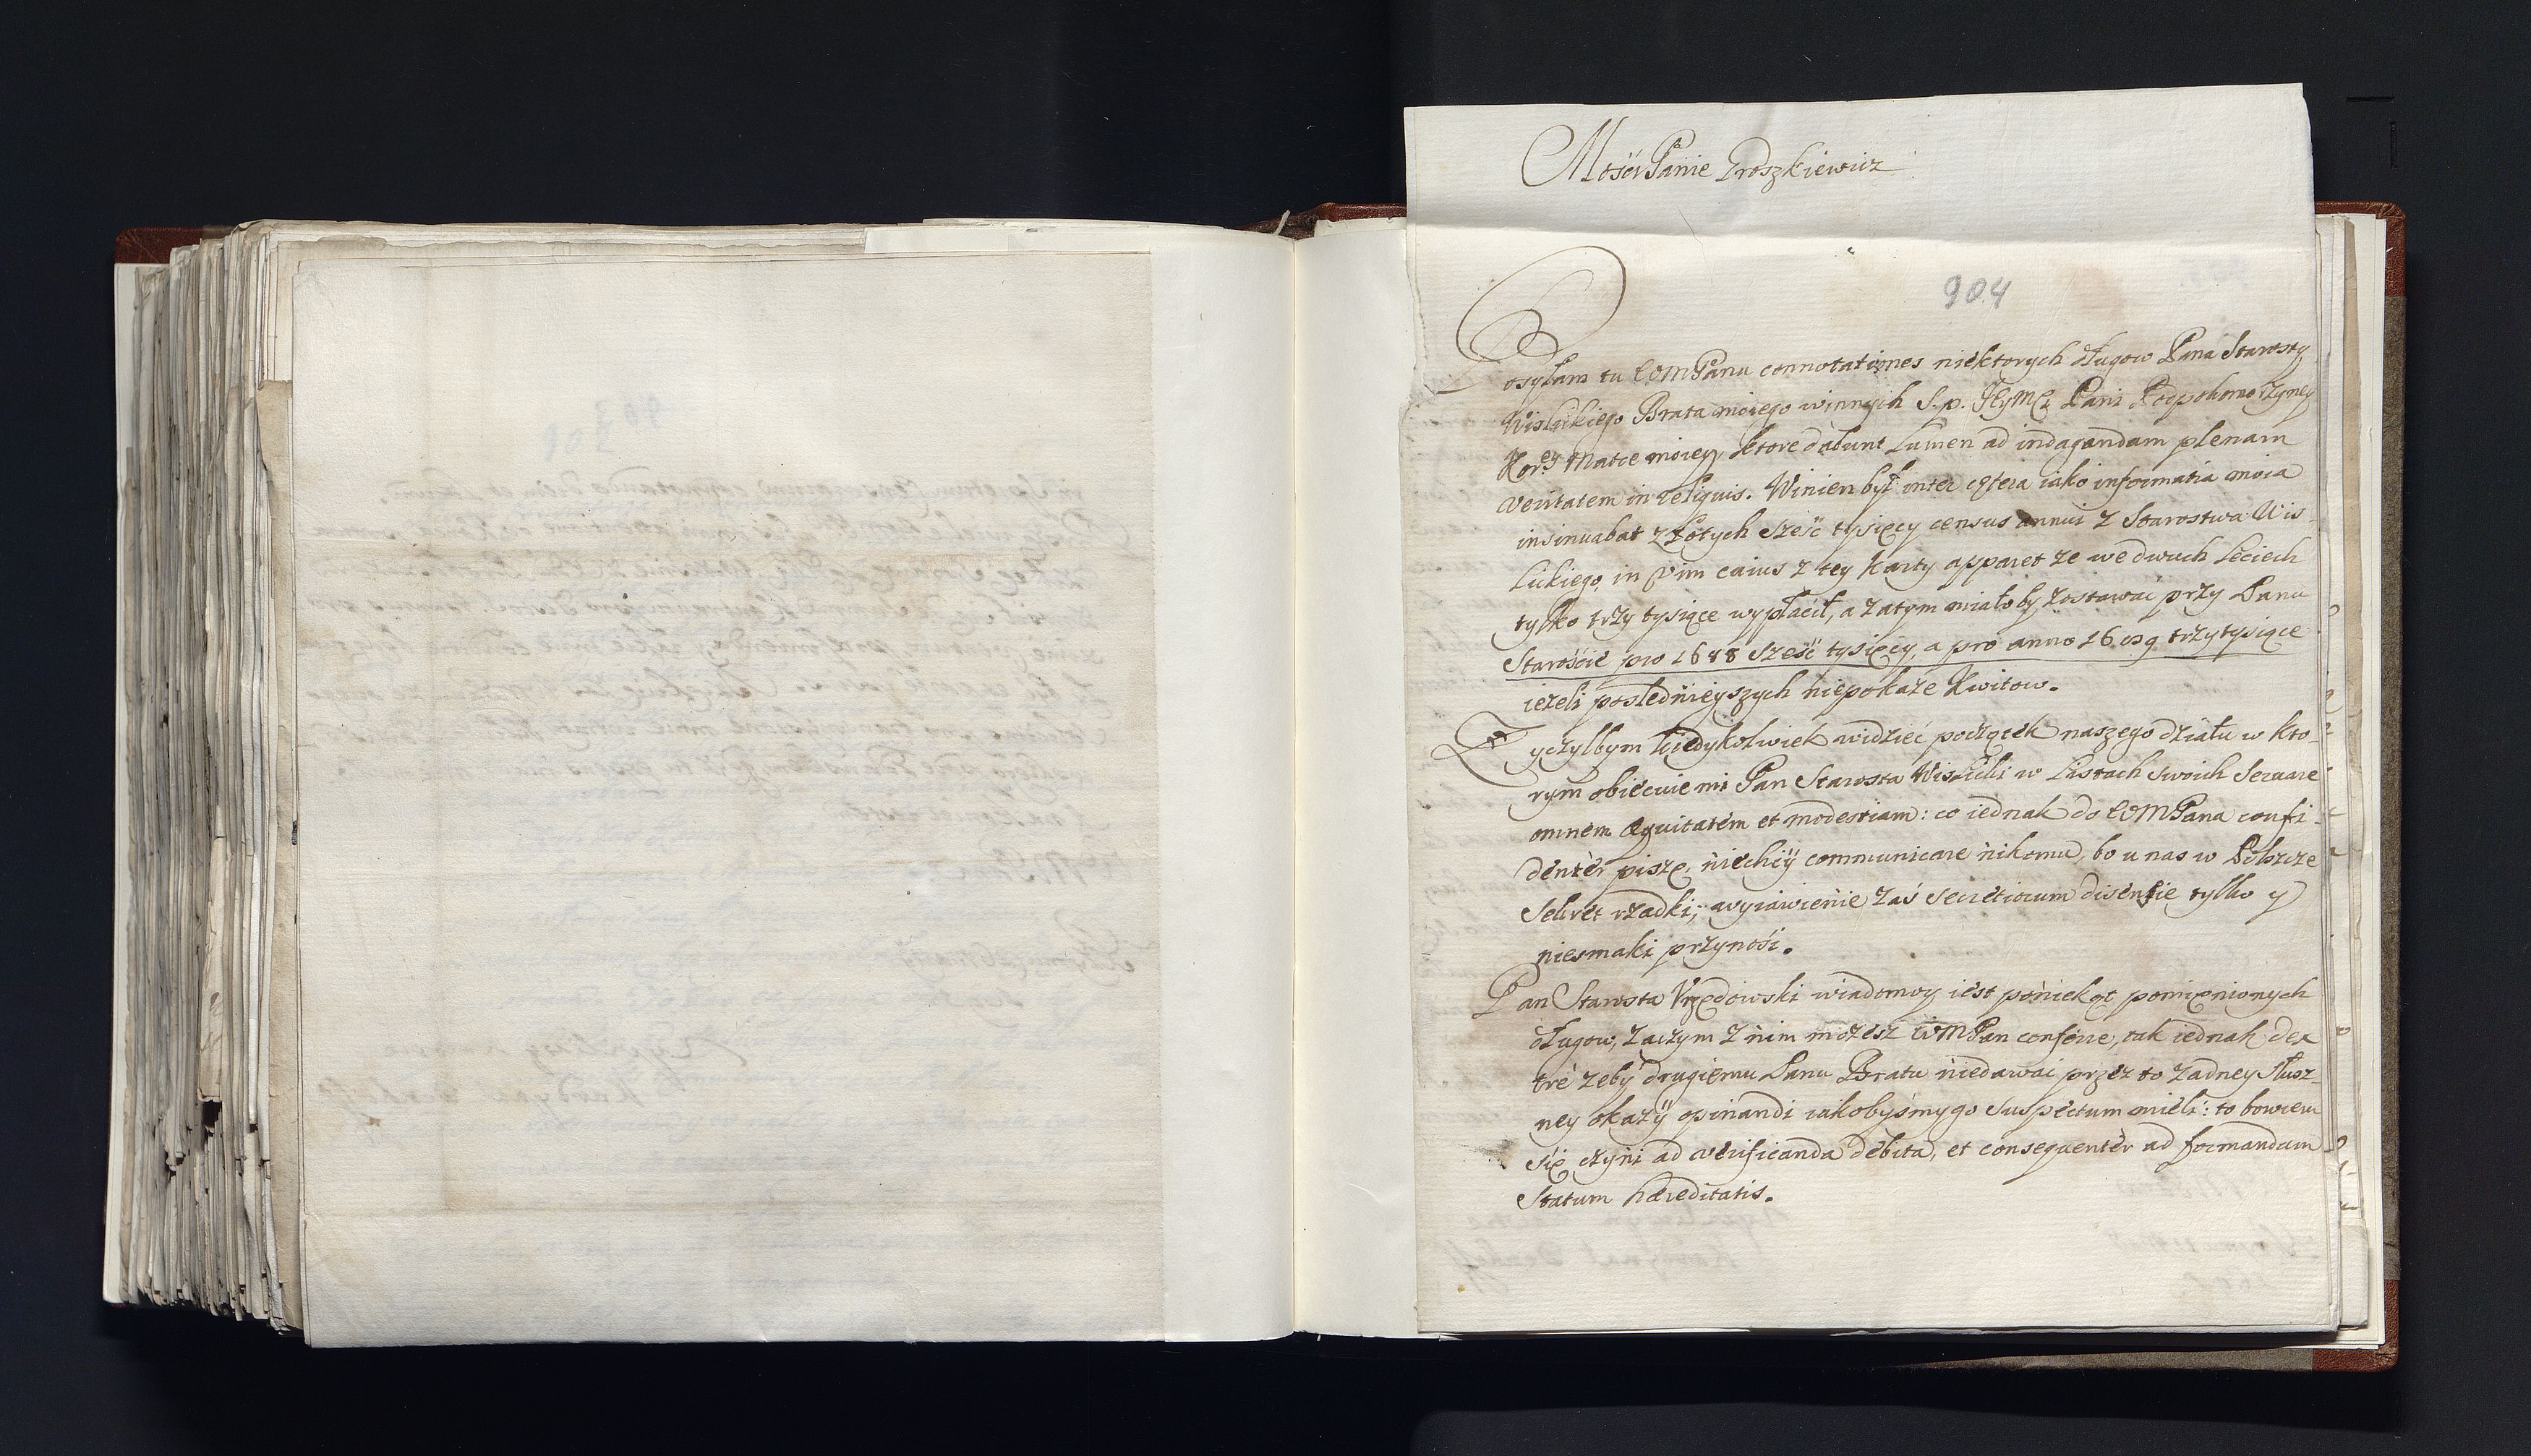 Mości Panie Proszkiewicz
904
Posyłam tu WMPanu connotationes niektorych długow Pana Starosty
Wislickiego Brata moiego winnych S. p. JeyMći Pani Podpołkomorzyney
Kor.ey Matce moiey, ktore dabunt Lumen ad indagandam plenam
veritatem in reliquis. Winien był inter cętera iako informatia moia
insinuabat złotych sześć tysięcy census annui z Starostwa Wis-
lickiego, in vim cuius z tey karty apparet ze we dwuch leciech
tylko trzy tysiące wypłacił, a zatym miałoby zostawać przy Panu
Starośćie pro 1688 sześć tysięcy, a pro anno 1689 trzy tysiące
ieżeli poslednieyszych niepokaże kwitow.
Zyczyłbym kiedykolwiek widzieć początek naszego działu w kto-
rym obiecuie mi Pan Starosta Wislicki w Listach swoich servare
omnem æquitatem et modestiam: co iednak do WMPana confi-
denter piszę, niechciy communicare nikomu, bo u nas w Polszcze
sekret rzadki, wyiawienie zaś secretiorum disensie tylko y
niesmaki przynosi.
Pan Starosta Vrzędowski wiadomy iest poniekąt pomięnionych
długow, zaczym z nim możesz WMPan conferre, tak iednak dex
tre żeby drugiemu Panu Bratu niedawać przez to żadney słusz-
ney okazÿ opinandi iakobyśmy go suspectum mieli: to bowiem
się czyni ad verificanda debita, et consequenter ad formandam
Statum hæreditatis.